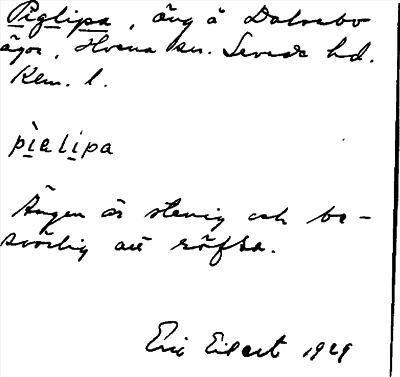 Piglipa, äng å Dalsebo
ägor, Hvena sn. Sevede hd.
Klm. l.
pìglipa
Ängen är stenig och be-
svärlig att räfsa.
Eric Eilert 1929